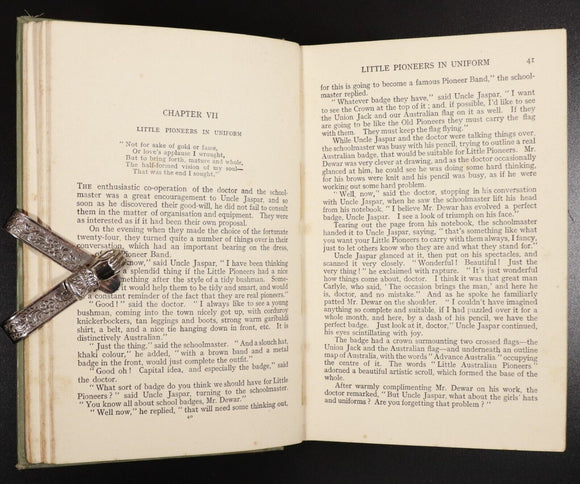 CHAPTER VII
LITTLE PIONEERS IN UNIFORM
" Not for sake of gold or fame,
Or love's applause I wrought,
But to bring forth, mature and whole,
The half-formed vision of my soul—
That was the end I sought."
THE enthusiastic co-operation of the doctor and the school-
master was a great encouragement to Uncle Jaspar, and so
soon as he discovered their good-will, he did not fail to consult
them in the matter of organisation and equipment. They were
as interested as if it had been their own proposal.
On the evening when they made the choice of the fortunate
twenty-four, they turned quite a number of things over in their
conversation, which had an important bearing on the dress,
Pioneer Band.
know," said Uncle Jaspar, " I have been thinking
a splendid thing if the Little Pioneers had a nice
something after the style of a tidy bushman. Some-
would help them to be tidy and smart, and would
a constant reminder of the fact that they are real pioneers."
" Good ! " said the doctor. " I always like to see a young
bushman, coming into the town nicely got up, with corduroy
knickerbockers, tan leggings and boots, strong warm garibaldi
shirt, a belt, and a nice tie hanging down in front, etc. It is
distinctively Australian."
" Just the thing," said the schoolmaster. " And a slouch hat,
khaki colour," he added, " with a brown band and a metal
badge in the front, would just complete the outfit."
" Good oh ! Capital idea, and especially the badge," said
the doctor.
" What sort of badge do you think we should have for Little
Pioneers ? " said Uncle Jaspar, turning to the schoolmaster.
" You know all about school badges, Mr. Dewar."
" Well now," he replied, " that will need some thinking out,
40
LITTLE PIONEERS IN UNIFORM 41
for this is going to become a famous Pioneer Band," the school-
master replied.
" Whatever badge they have," said Uncle Jaspar, " I want
to see the Crown at the top of it ; and, if possible, I'd like to see
the Union Jack and our Australian flag on it as well. If they
are going to be like the Old Pioneers they must carry the flag
with them. They must keep the flag flying."
While Uncle Jaspar and the doctor were talking things over,
the schoolmaster was busy with his pencil, trying to outline a real
Australian badge, that would be suitable for Little Pioneers. Mr.
Dewar was very clever at drawing, and as the doctor occasionally
glanced at him, he could see he was doing some hard thinking,
for his brows were knit and his pencil was busy, as if he were
working out some hard problem.
" Well, now," said the doctor, stopping in his conversation
with Uncle Jaspar, when he saw the schoolmaster lift his head
from his notebook, " I believe Mr. Dewar has evolved a perfect
badge, Uncle Jaspar. I see a look of triumph on his face."
Tearing out the page from his notebook, the schoolmaster
handed it to Uncle Jaspar, saying, " that's something like what
you want your Little Pioneers to carry with them always, I fancy,
just to let others know who they are and what they stand for."
Uncle Jaspar glanced at it, then put on his spectacles, and
scanned it very closely. " Wonderful ! Beautiful ! Just the
very thing ! " he exclaimed with rapture. " It's just wonderful
how things come about, doctor. I think it was that great man
Carlyle, who said, 'The occasion brings the man,' and here he
is, doctor, and no mistake." And as he spoke he familiarly
patted Mr. Dewar on the shoulder. " I couldn't have imagined
anything so complete and suitable, if I had puzzled over it for a
whole month, and here, by a dash of his pencil, we have the
perfect badge. Just look at it, doctor," Uncle Jaspar continued,
his eyes scintillating with joy.
The badge had a crown surmounting two crossed flags—the
Union Jack and the Australian flag—and underneath an outline
map of Australia, with the words " Advance Australia " occupying
the centre of it. The words " Little Australian Pioneers "
adorned a beautiful artistic scroll, which formed the base of the
whole.
After warmly complimenting Mr. Dewar on his work, the
doctor remarked, " But Uncle Jaspar, what about the girls' hats
and uniforms ? Are you forgetting that problem ? "